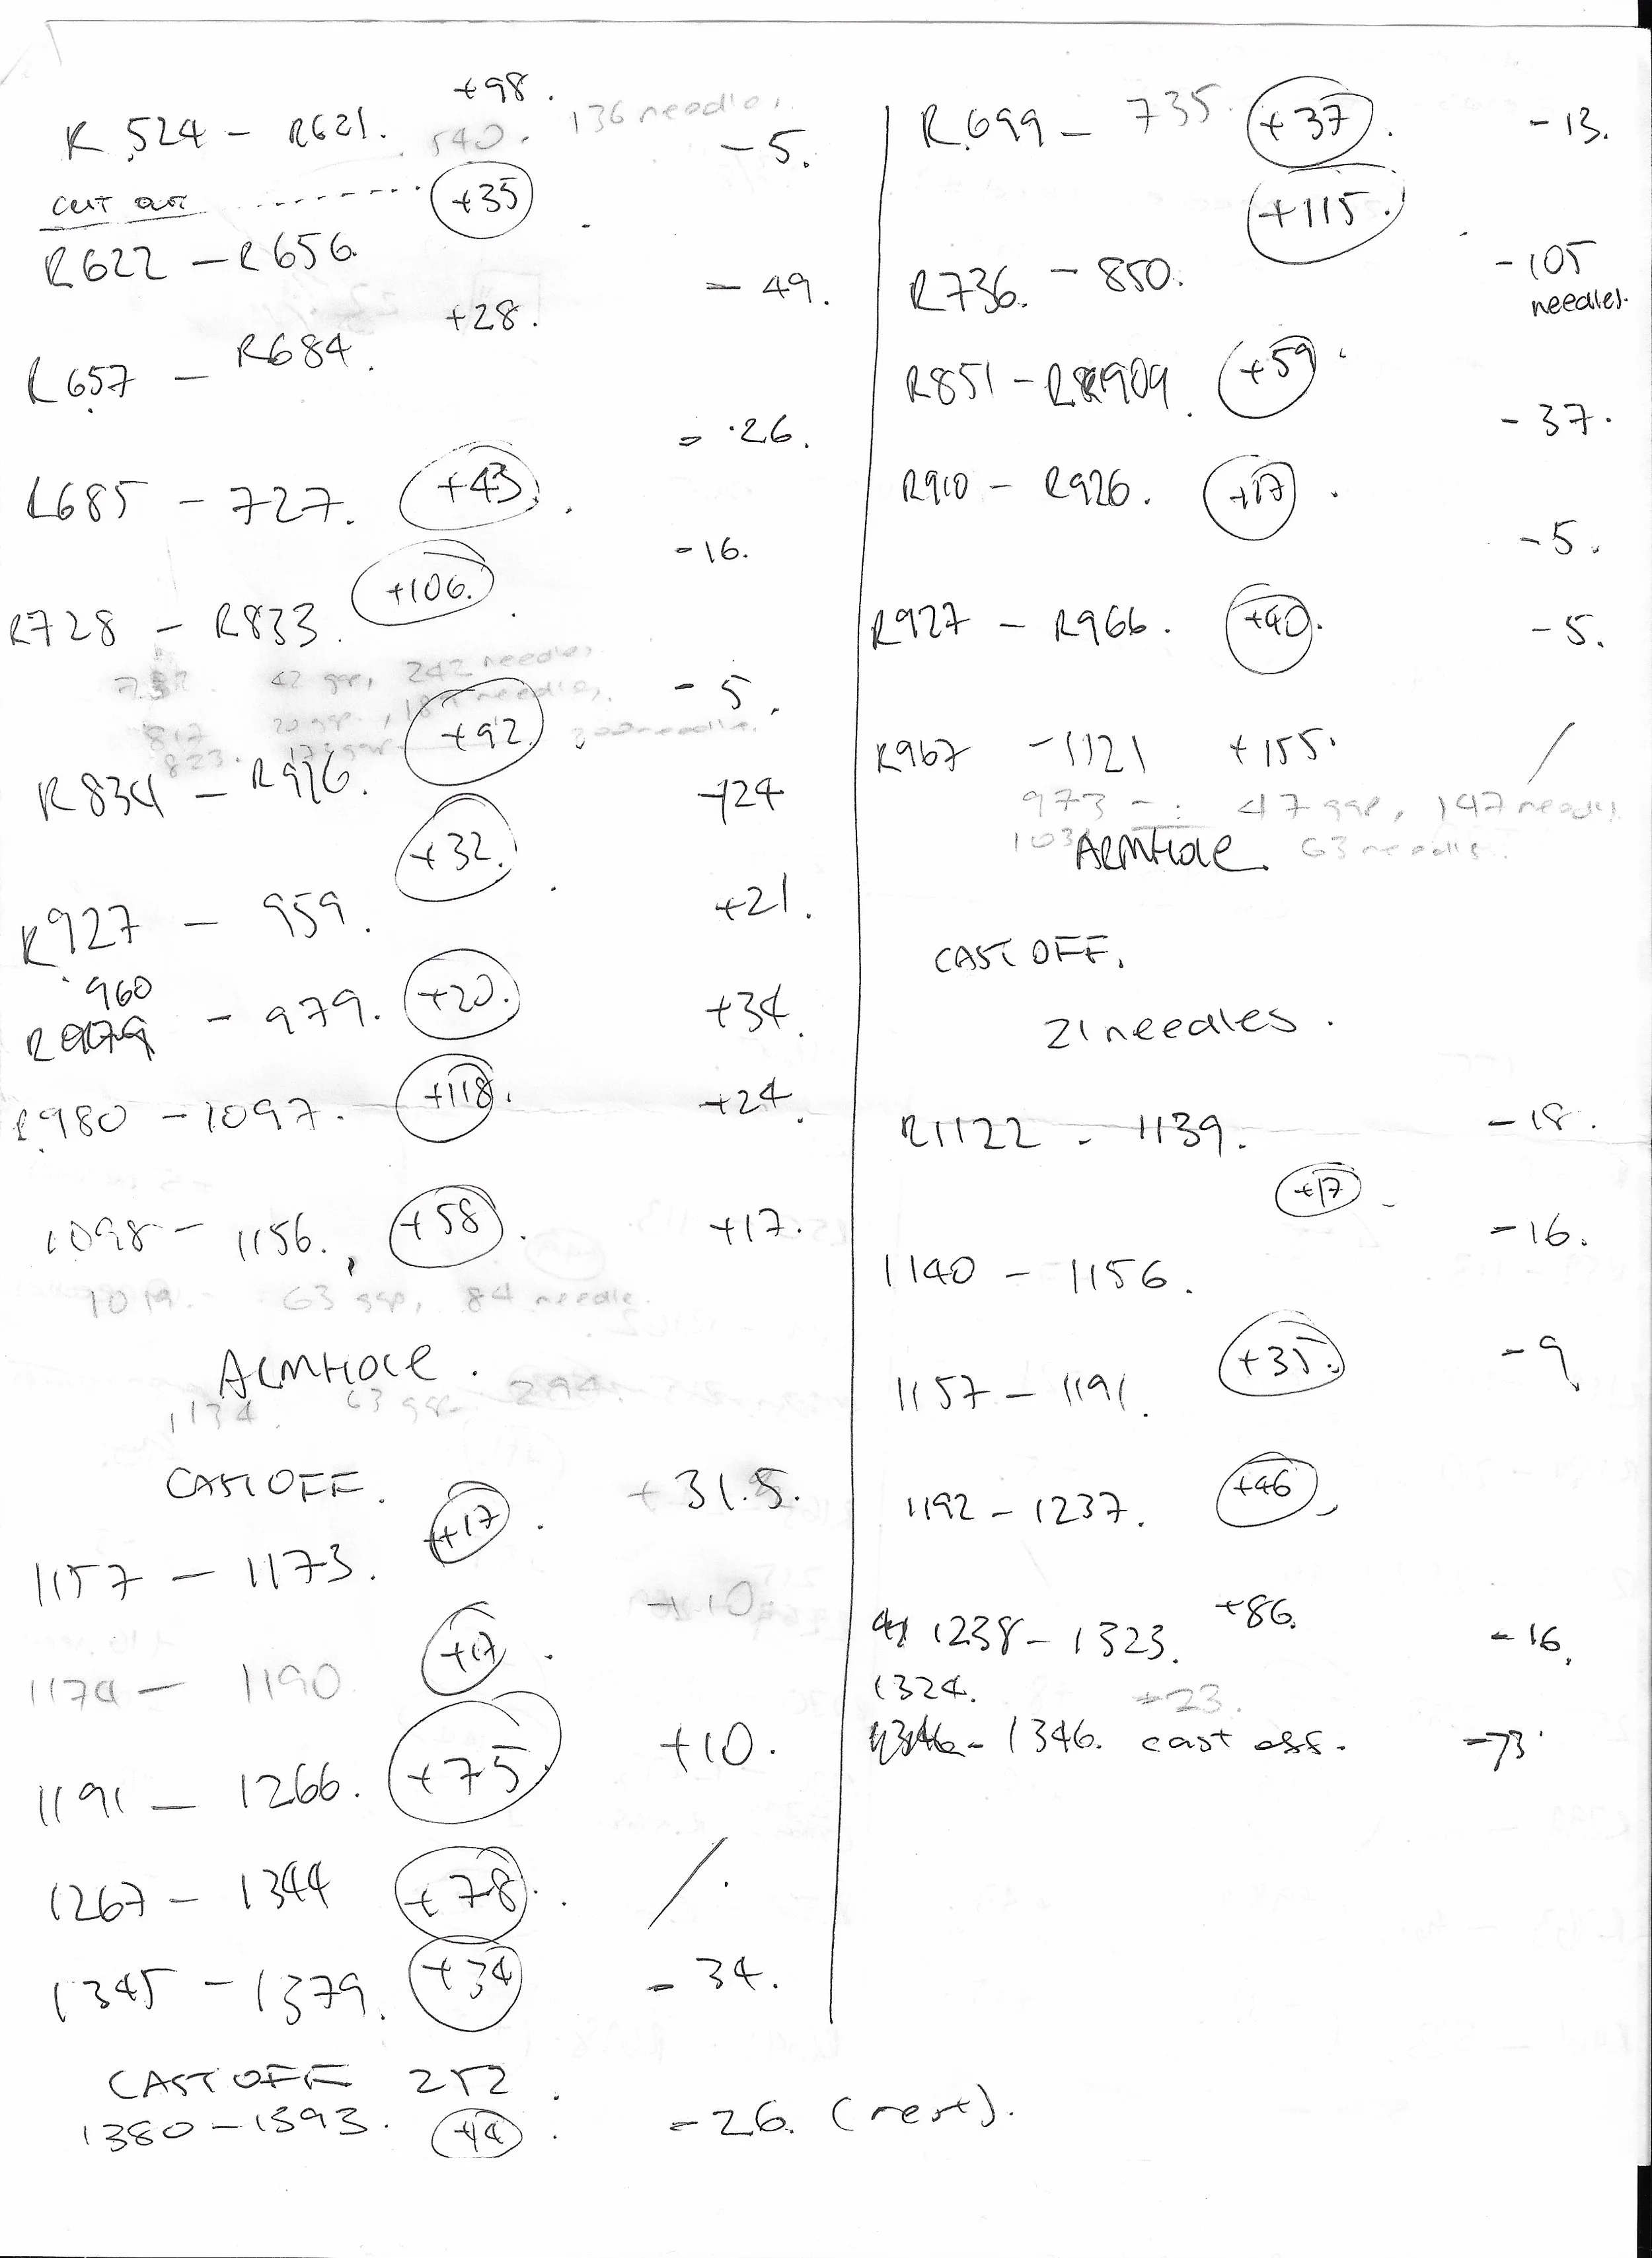 +98.
R524 - R621. - 5.
540. 136 needles
CUT OUT -------- +35
R622 - R656.
- 49.
+28.
R657 - R684.
- 26.
R685 - 727. +43.
- 16.
+106.
R728 - R833.
42 gap, 242 needles
- 5.
817 20 gap, needles
+92
823. 17 gap needle.
R834 - R926.
+24
+32.
R927 - 959. +21.
960
R979 - 979. +20. +34.
R980 - 1097. +118. +24.
1098 - 1156. +58. +17.
1019. - 63 gap, 84 needle.
ARMHOLE.
1134. 63 gap 294.
CAST OFF. + 31.5.
1157 - 1173. +17.
+10
1174 - 1190 +17.
1191 - 1266. +75. +10.
1267 - 1344 +78. /.
1345 - 1379. +34 - 34.
CAST OFF 252.
1380 - 1393. +14. - 26. (rest).
R699 - 735. +37. - 13.
+115.
R736. - 850. - 105
needles.
R851 - R909. +59
- 37.
R910 - R926. +17.
- 5.
R927 - R966. +40. - 5.
R967 - 1121 +155. /
973 - : 47 gap, 147 needles
ARMHOLE. 63 needles.
CAST OFF.
21 needles.
R1122 - 1139. - 18.
+17
- 16.
1140 - 1156.
+35. - 9
1157 - 1191.
1192 - 1237. +46
1238 - 1323. +86. - 16.
1324. +23.
- 1346. cast off. - 73.